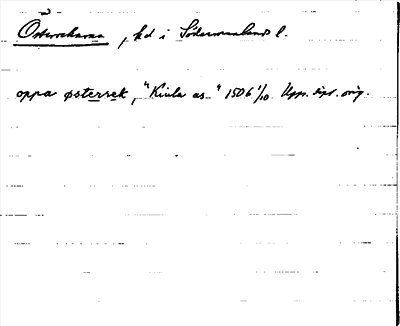 Österåkarna, hd i Södermanlands l.
oppa østerrek, "Kiula as." 1506 1/10. Upps. dipl. orig.